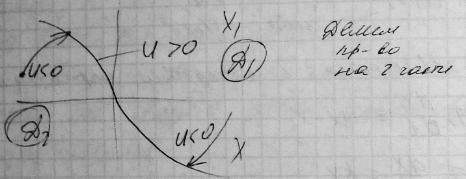 u<0
u>0
X₁
Д₁
Д₂
u<0
X
Делим
пр-во
на 2 части